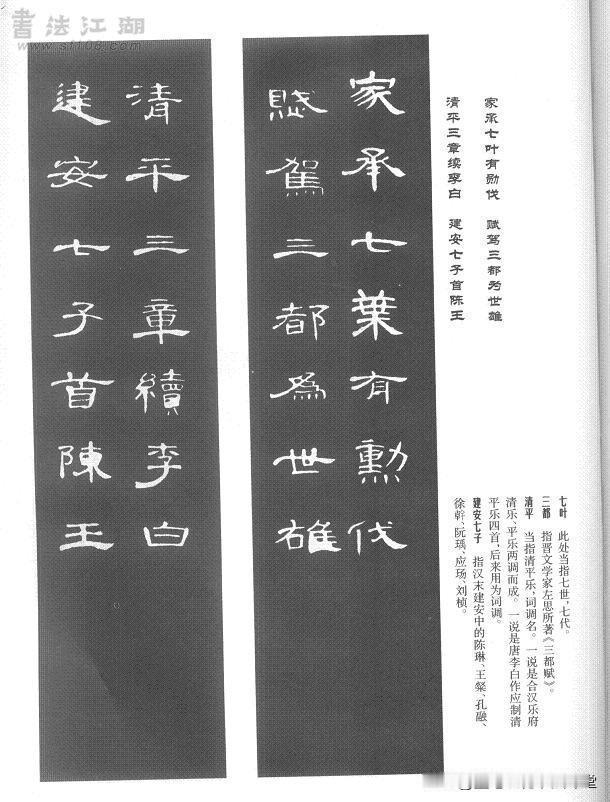 書法江湖
www.sf108.com
家承七葉有勳伐
賦駕三都為世雄
清平三章續李白
建安七子首陳王
家承七叶有勋伐　赋驾三都为世雄
清平三章续李白　建安七子首陈王
七叶　此处当指七世,七代。
三都　指晋文学家左思所著《三都赋》。
清平　当指清平乐,词调名。一说是合汉乐府
清乐、平乐两调而成。一说是唐李白作应制清
平乐四首,后来用为词调。
建安七子　指汉末建安中的陈琳、王粲、孔融、
徐幹、阮瑀、应玚、刘桢。